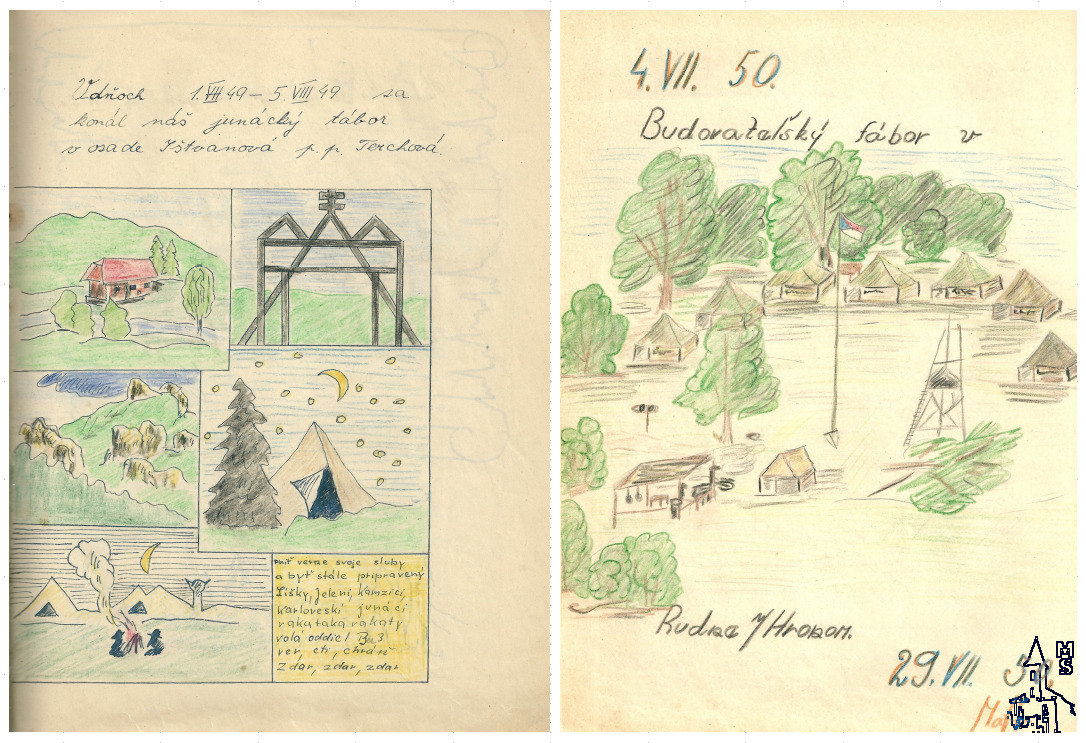 V dňoch 1.VII.49 – 5.VIII.49 sa
konál náš junácký tábor
v osade Ištvanová p.p. Terchová.
Plniť verne svoje sluby
a byť stále pripravený
Líšky, Jeleni, Kamzíci,
karloveskí junáci
rakataka rakaty
volá oddiel Ba 3
ver, cti, chráň
Zdar, zdar, zdar
4.VII. 50.
Budovateľský tábor v
Rudne n/Hronom.
29.VII. 50.
MS